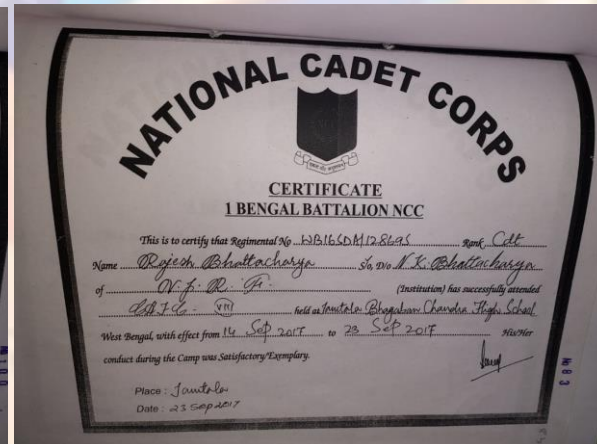 NATIONAL CADET CORPS
CERTIFICATE
1 BENGAL BATTALION NCC
This is to certify that Regimental No WB16SDA128695 Rank Cdt
Name Rajesh Bhattacharya So, D/o N.K. Bhattacharya
of (Institution) has successfully attended
VII held at Jamtala Bhagaban Chandra High School
West Bengal, with effect from 14 Sep 2017 to 23 Sep 2017 His/Her
conduct during the Camp was Satisfactory/Exemplary.
Place : Jamtala
Date : 23 Sep 2017